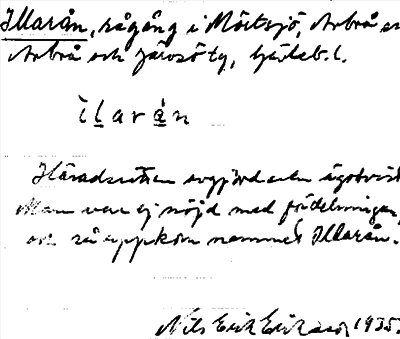 Illarån, rågång i Mörtsjö, Arbrå sn
Arbrå och Järvsö tg, Gävleb. l.
ı̀larån
Häradsrätten avgjorde en ägotvist
Man var ej nöjd med fördelningen,
och så uppkom namnet Illarån.
Nils Erik Eriksson 1935.